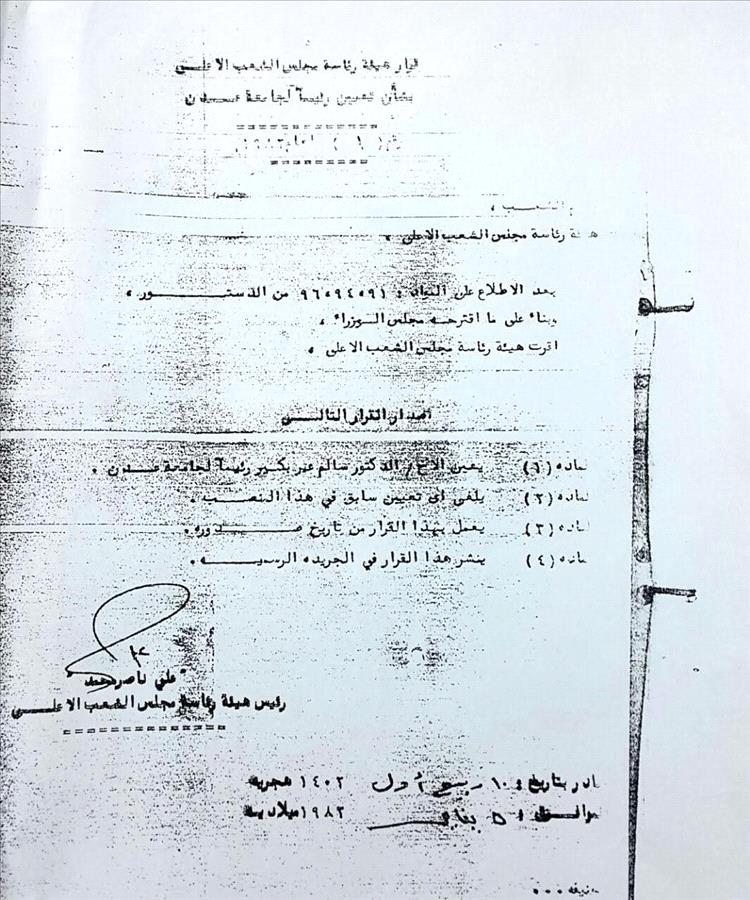 قرار هيئة رئاسة مجلس الشعب الاعلـــى
بشأن تعيين رئيسآ لجامعة عـــدن
( ١ ) لعام ١٩٨٢م
الشـــعب ،
هيئة رئاسة مجلس الشعب الاعلى .
بعد الاطلاع على المواد ، ٩١ ٩٤٥ ٩٦٥ من الدستـــــور ،
وبناء على ما اقترحه مجلس الـوزراء ،
اقرت هيئة رئاسة مجلس الشعب الاعلى ،
اصدار القرار التالــــي
ماده (١) يعين الاخ / الدكتور سالم عمر بكير رئيسآ لجامعة عـــدن .
ماده (٢) يلغى اى تعيين سابق في هذا المنصـــب .
ماده (٣) يعمل بهذا القرار من تاريخ صـــــدوره .
ماده (٤) ينشر هذا القرار في الجريده الرسميـــــه .
علي ناصر محمد
رئيس هيئة رئاسة مجلس الشعب الاعلــــى
در بتاريخ ، ١٠ ربيع أول ١٤٠٢ هجريه
٥ يناير ١٩٨٢ ميلاديه